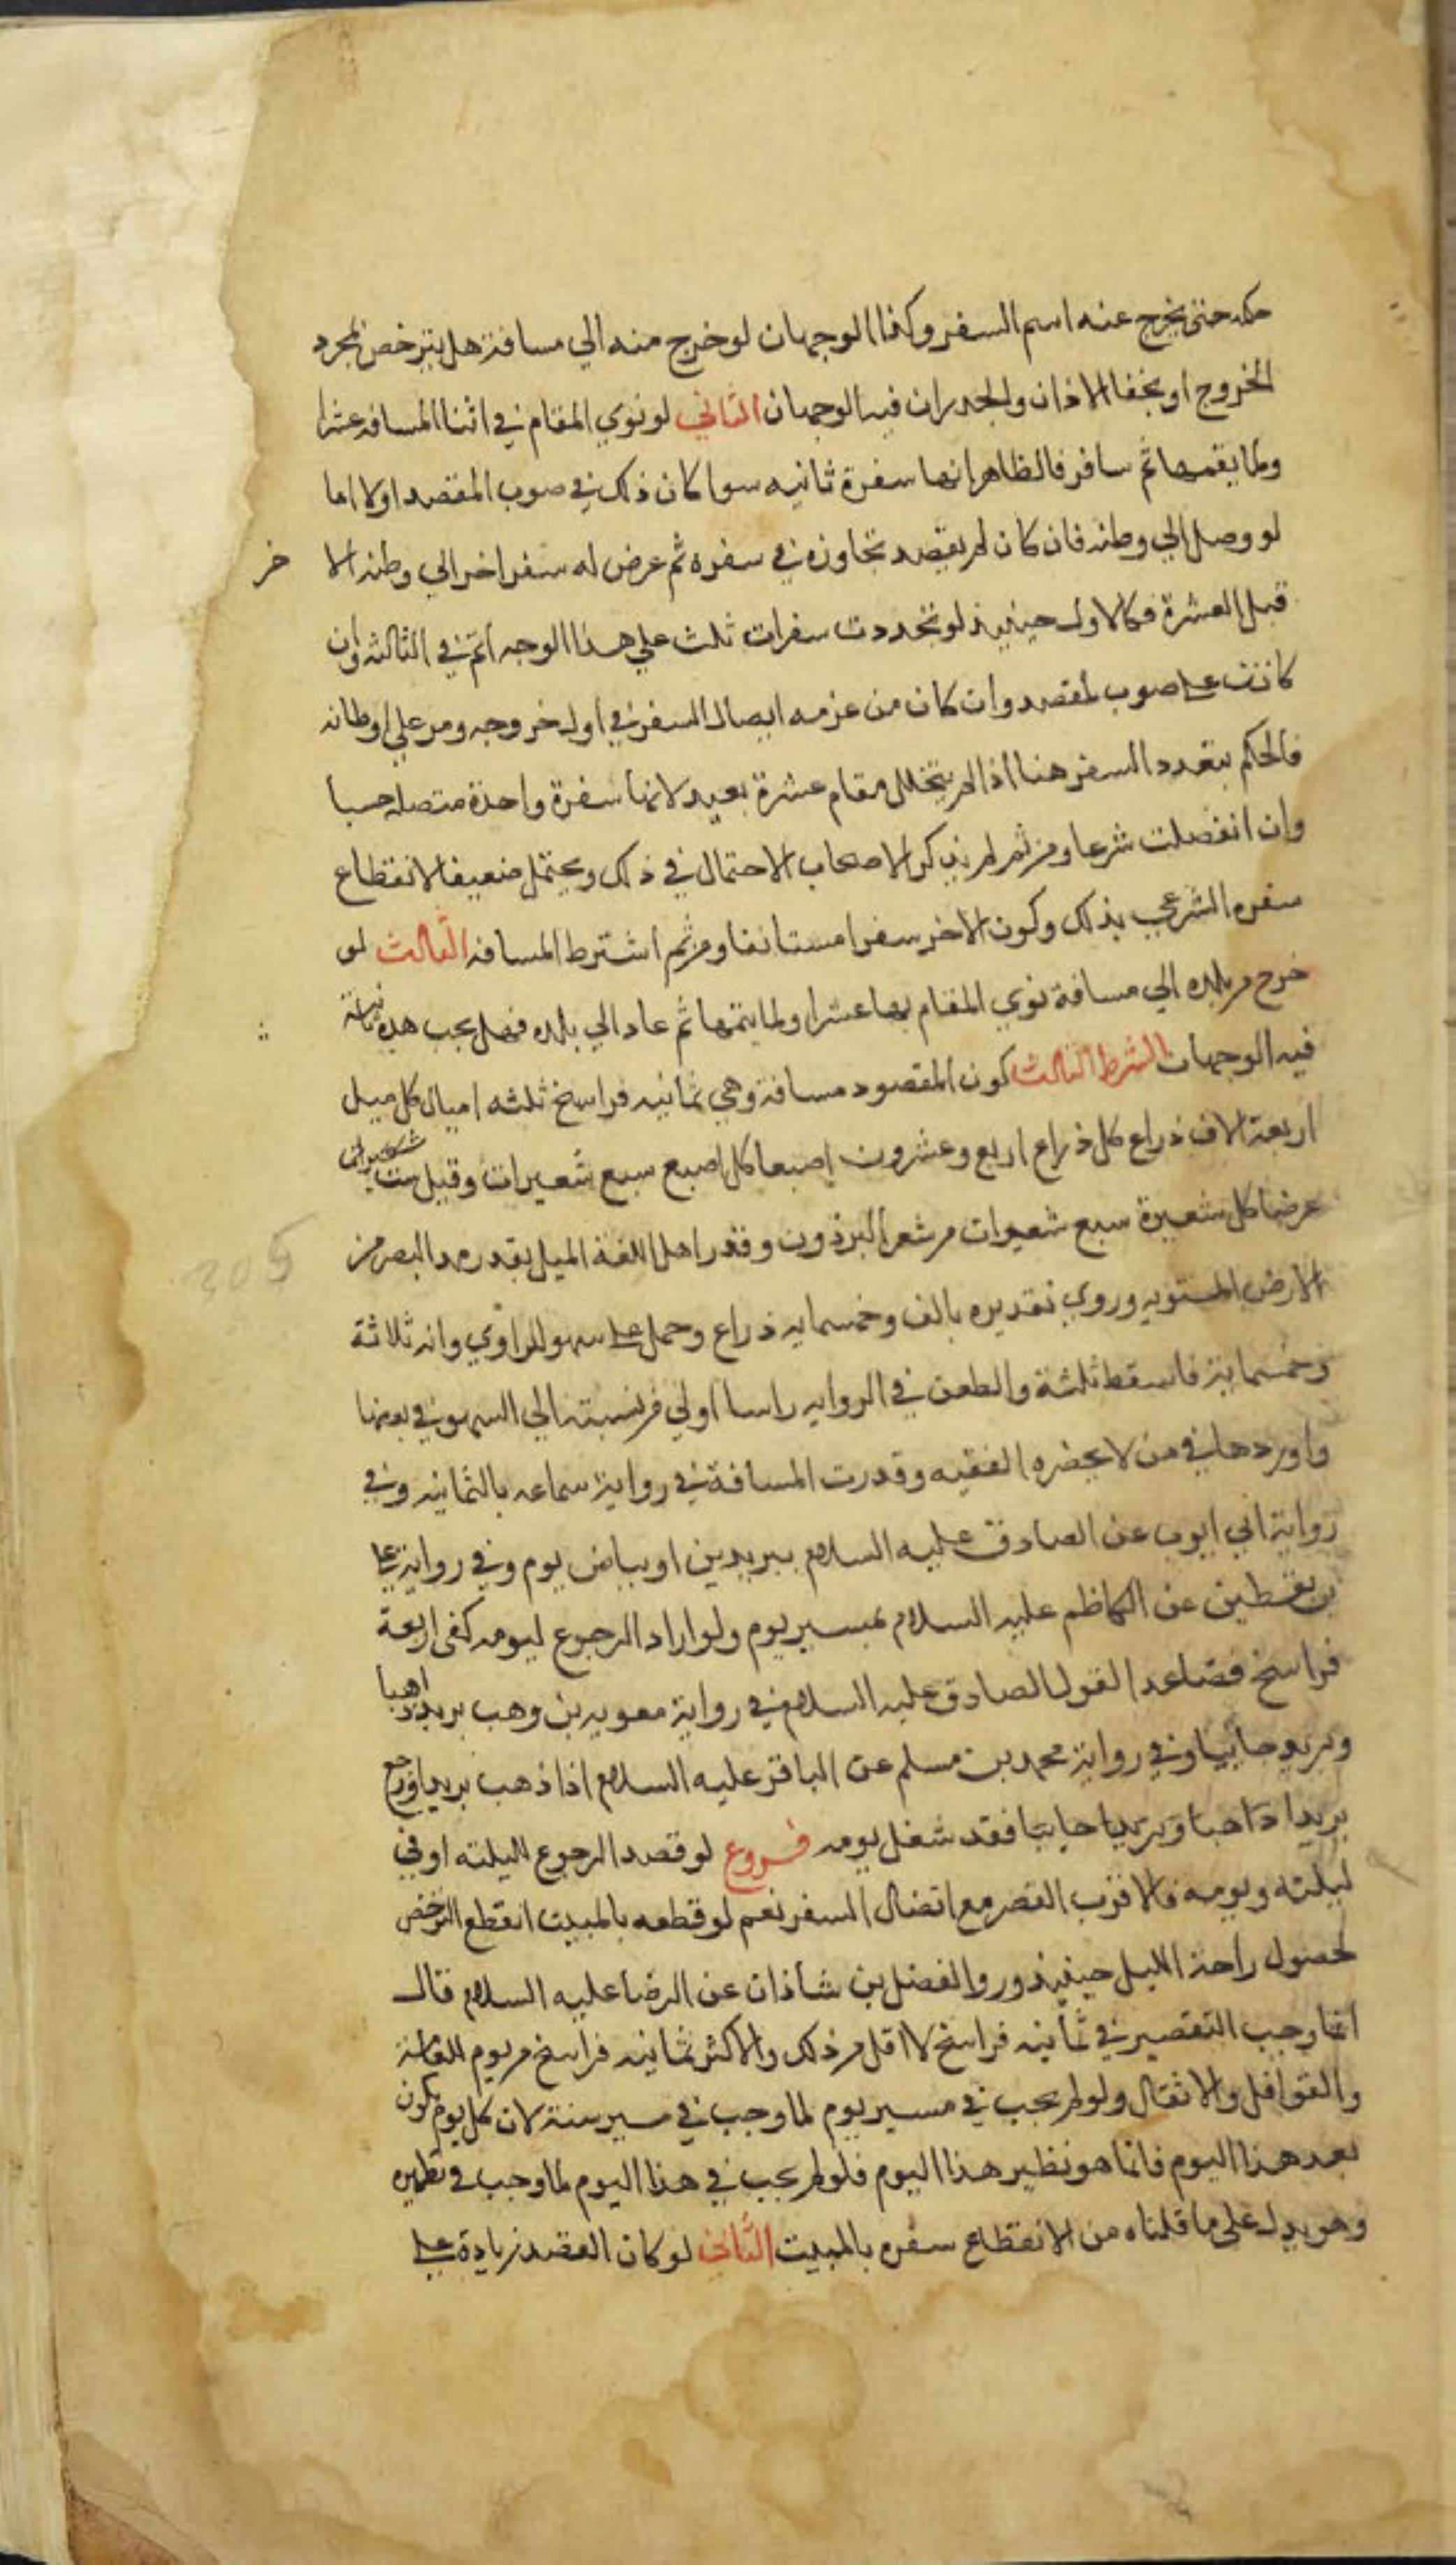 حكمه حتى يخرج عنه اسم السفر وكذا الوجهان لو خرج منه الي مسافة هل يترخص بمجرد
الخروج او بخفا الاذان والجدران فيه الوجهان الثاني لو نوي المقام في اثنا المسافه عشرا
ولما يقمها ثم سافر فالظاهر انها سفرة ثانيه سوا كان ذلك في صوب المقصد اولا اما
لو وصل الي وطنه فان كان لم يقصد تجاوزه في سفره ثم عرض له سفر اخر الي وطنه الا
خر
قبل العشرة فكالاول حينيذ لو تجددت سفرات ثلث علي هذا الوجه اتم في الثالثه وان
كانت على صوب المقصد وان كان من عزمه ايصال السفر في اول خروجه ومر علي اوطانه
فالحكم بتعدد السفر هنا اذا لم يتخلل مقام عشرة بعيد لانها سفرة واحدة متصله حسا
وان انفصلت شرعا ومن ثم لم يذكر الاصحاب الاحتمال في ذلك ويحتمل ضعيفا لانقطاع
سفره الشرعي بذلك وكون الاخر سفرا مستانفا ومن ثم اشترط المسافه الثالث لو
خرج من بلده الي مسافة نوي المقام بها عشرا ولما يتمها ثم عاد الي بلده فهل يحب هذه ثانية
فيه الوجهان الشرط الثالث كون المقصود مسافة وهي ثمانيه فراسخ ثلثه اميال كل ميل
اربعة الاف ذراع كل ذراع اربع وعشرون اصبعا كل اصبع سبع شعيرات وقيل ست
عرضا كل شعيرة سبع شعيرات من شعر البرذون وقدر اهل اللغة الميل بقدر مد البصر من
الارض المستويه وروي تقديره بالف وخمسمايه ذراع وحمل على سهو الراوي وانه ثلاثة
وخمسماية فاسقط ثلثة والطعن في الروايه راسا اولي من نسبته الي السهو في بعضها
واوردها في من لا يحضره الفقيه وقدرت المسافة في رواية سماعه بالثمانيه وفي
رواية ابي ايوب عن الصادق عليه السلام ببريدين او بياض يوم وفي رواية علي
بن يقطين عن الكاظم عليه السلام بمسير يوم ولو اراد الرجوع ليومه كفى اربعة
فراسخ فصاعدا لقول الصادق عليه السلام في رواية معويه بن وهب بريد ذاهبا
وبريد جاييا وفي رواية محمد بن مسلم عن الباقر عليه السلام اذا ذهب بريدا ورجع
بريدا ذاهبا وبريدا جاييا فقد شغل يومه فروع لو قصد الرجوع لليلته او في
ليلته ويومه فالاقرب القصر مع اتصال السفر نعم لو قطعه بالمبيت انقطع الترخص
لحصول راحة الليل حينيذ وروا الفضل بن شاذان عن الرضا عليه السلام قال
انما وجب التقصير في ثمانيه فراسخ لا اقل من ذلك والاكثر ثمانيه فراسخ مريوم للعامة
والقوافل والاثقال ولو لم يجب في مسير يوم لما وجب في مسير سنة لان كل يوم يكون
بعد هذا اليوم فانما هو نظير هذا اليوم فلو لم يجب في هذا اليوم لما وجب في نظيره
وهو يدل على ما قلناه من الانقطاع سفره بالمبيت الثاني لو كان القصد زيادة على